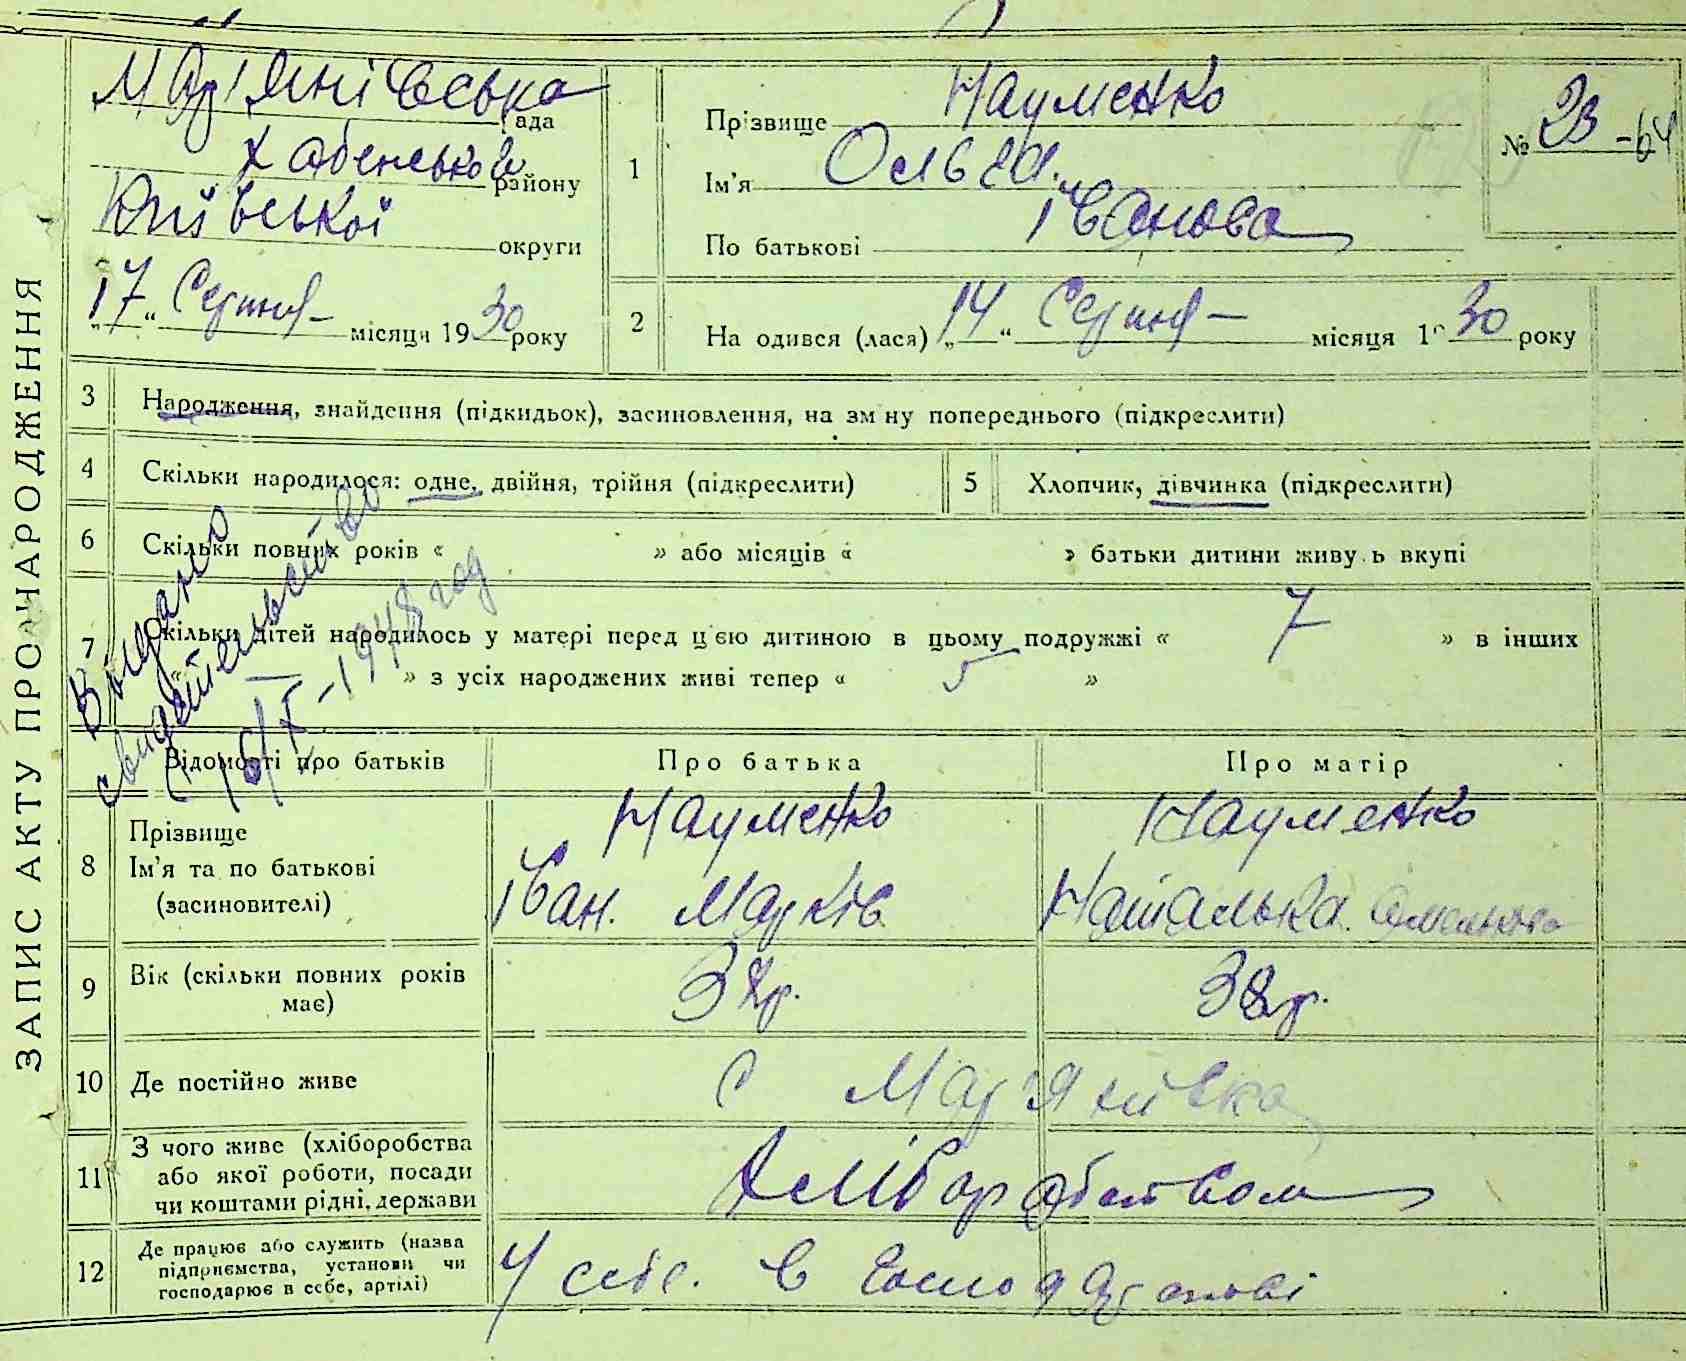 ЗАПИС АКТУ ПРО НАРОДЖЕННЯ
Мар'янівська рада
Хабенського району
Київської округи
„17“ Серпня місяця 1930 року
1
Прізвище Науменко
Ім'я Ольга
По батькові Іванова
№ 23-64
2
На одився (лася) „14“ Серпня місяця 1930 року
3 Народження, знайдення (підкидьок), засиновлення, на зм ну попереднього (підкреслити)
4 Скільки народилося: одне, двійня, трійня (підкреслити)
5 Хлопчик, дівчинка (підкреслити)
6 Скільки повних років « » або місяців « » батьки дитини живу ь вкупі
7 Скільки дітей народилось у матері перед цією дитиною в цьому подружжі « 7 » в інших
« — » з усіх народжених живі тепер « 5 »
Выдано
свидетельство
16/X-1948 год
Відомості про батьків
Про батька
Про матір
8
Прізвище
Ім'я та по батькові
(засиновителі)
Науменко
Іван Марків
Науменко
Наталька Омелькова
9
Вік (скільки повних років
має)
38р.
38р.
10 Де постійно живе
с Мар'янівка
11
З чого живе (хліборобства
або якої роботи, посади
чи коштами рідні, держави
Хліборобством
12
Де працює або служить (назва
підприємства, установи чи
господарює в себе, артілі)
У себе в господарстві